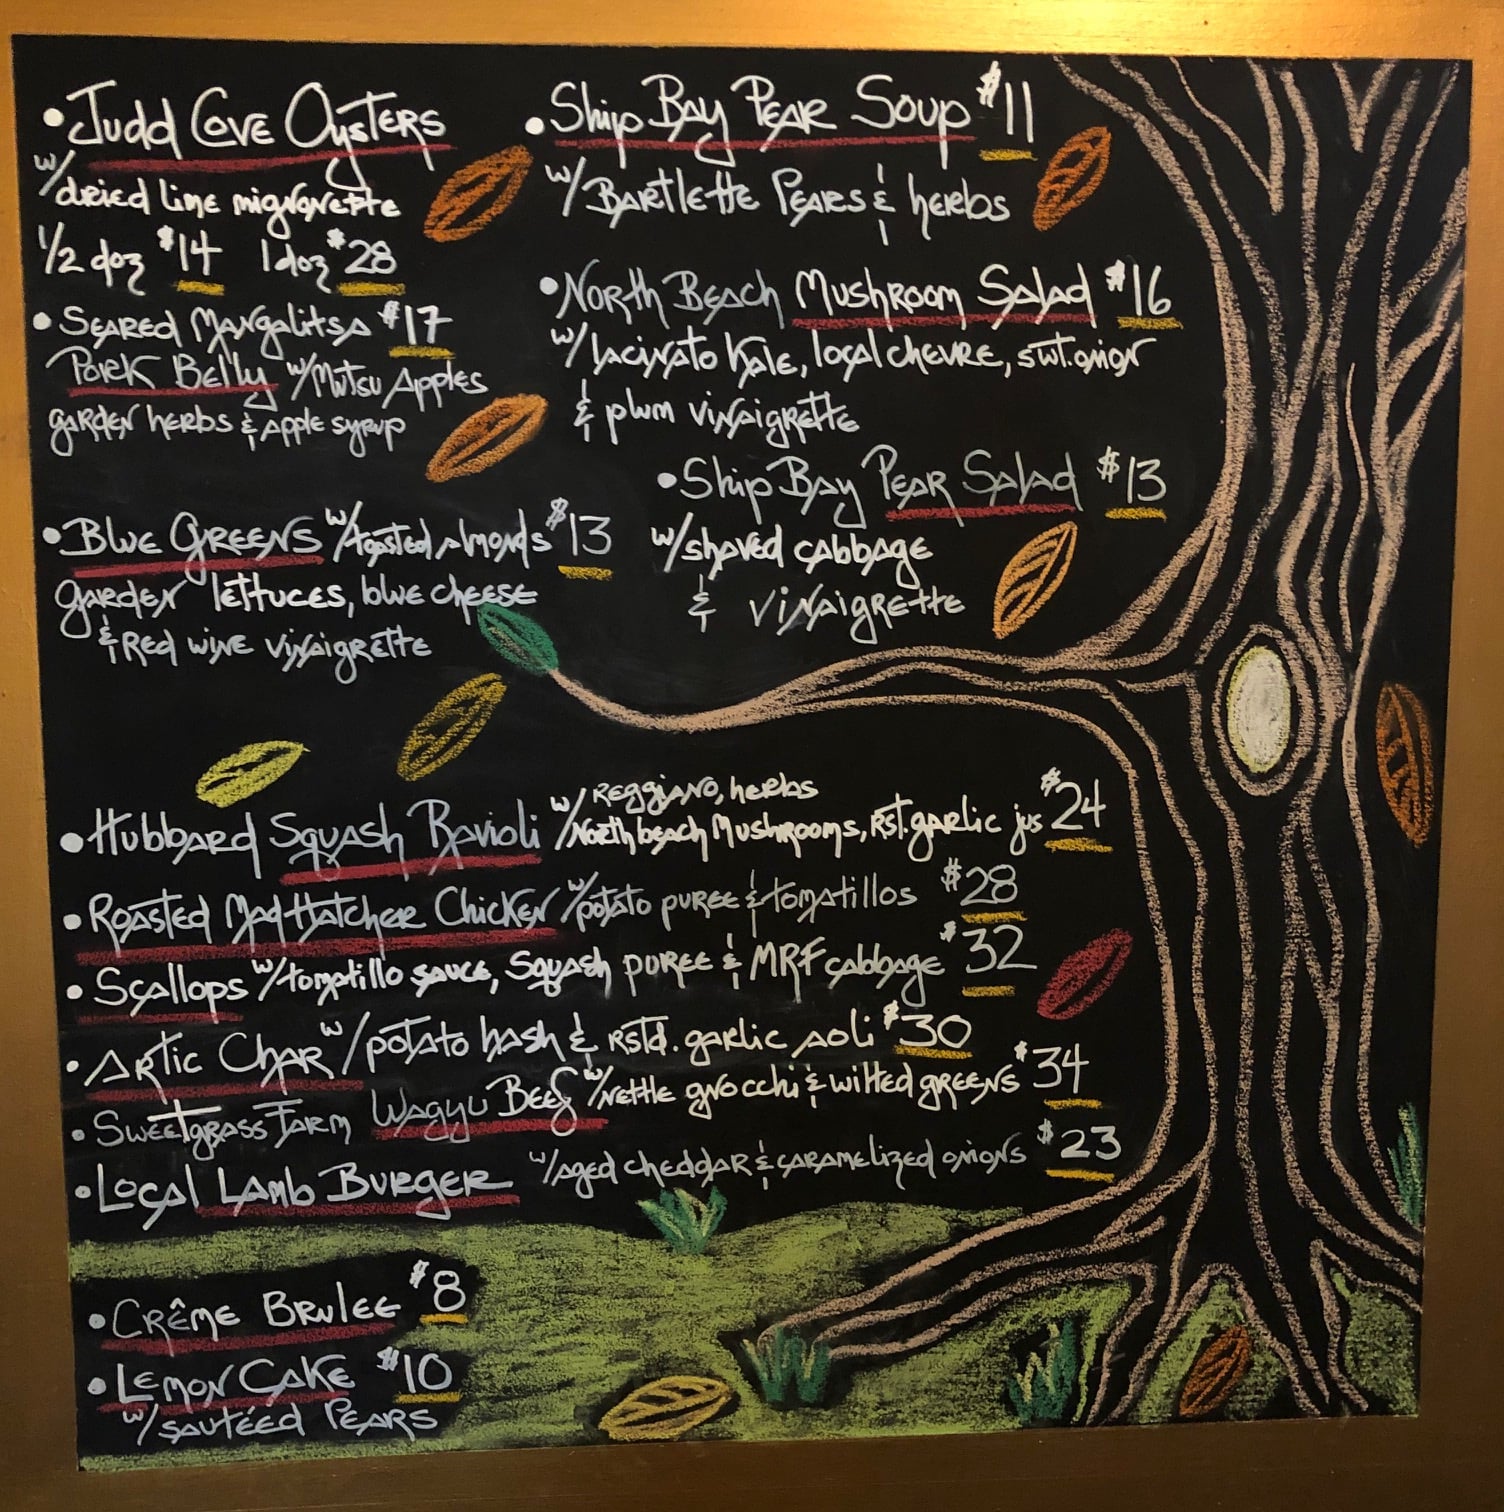 • Judd Cove Oysters
w/ dried lime mignonette
1/2 doz $14 1 doz $28
• Seared Mangalitsa $17
Pork Belly w/ Mutsu Apples
garden herbs & apple syrup
• Blue Greens w/ toasted almonds $13
garden lettuces, blue cheese
& red wine vinaigrette
• Ship Bay Pear Soup $11
w/ Bartlette Pears & herbs
• North Beach Mushroom Salad $16
w/ lacinato Kale, local chevre, swt. onion
& plum vinaigrette
• Ship Bay Pear Salad $13
w/ shaved cabbage
& vinaigrette
• Hubbard Squash Ravioli w/ Reggiano, herbs
North beach Mushrooms, Rst. garlic jus $24
• Roasted Mad Hatcher Chicken w/ potato puree & tomatillos $28
• Scallops w/ tomatillo sauce, Squash puree & MRF cabbage $32
• Artic Char w/ potato hash & rstd. garlic aoli $30
• Sweetgrass Farm Wagyu Beef w/ nettle gnocchi & wilted greens $34
• Local Lamb Burger w/ aged cheddar & caramelized onions $23
• Crême Brulee $8
• Lemon Cake $10
w/ sautéed Pears